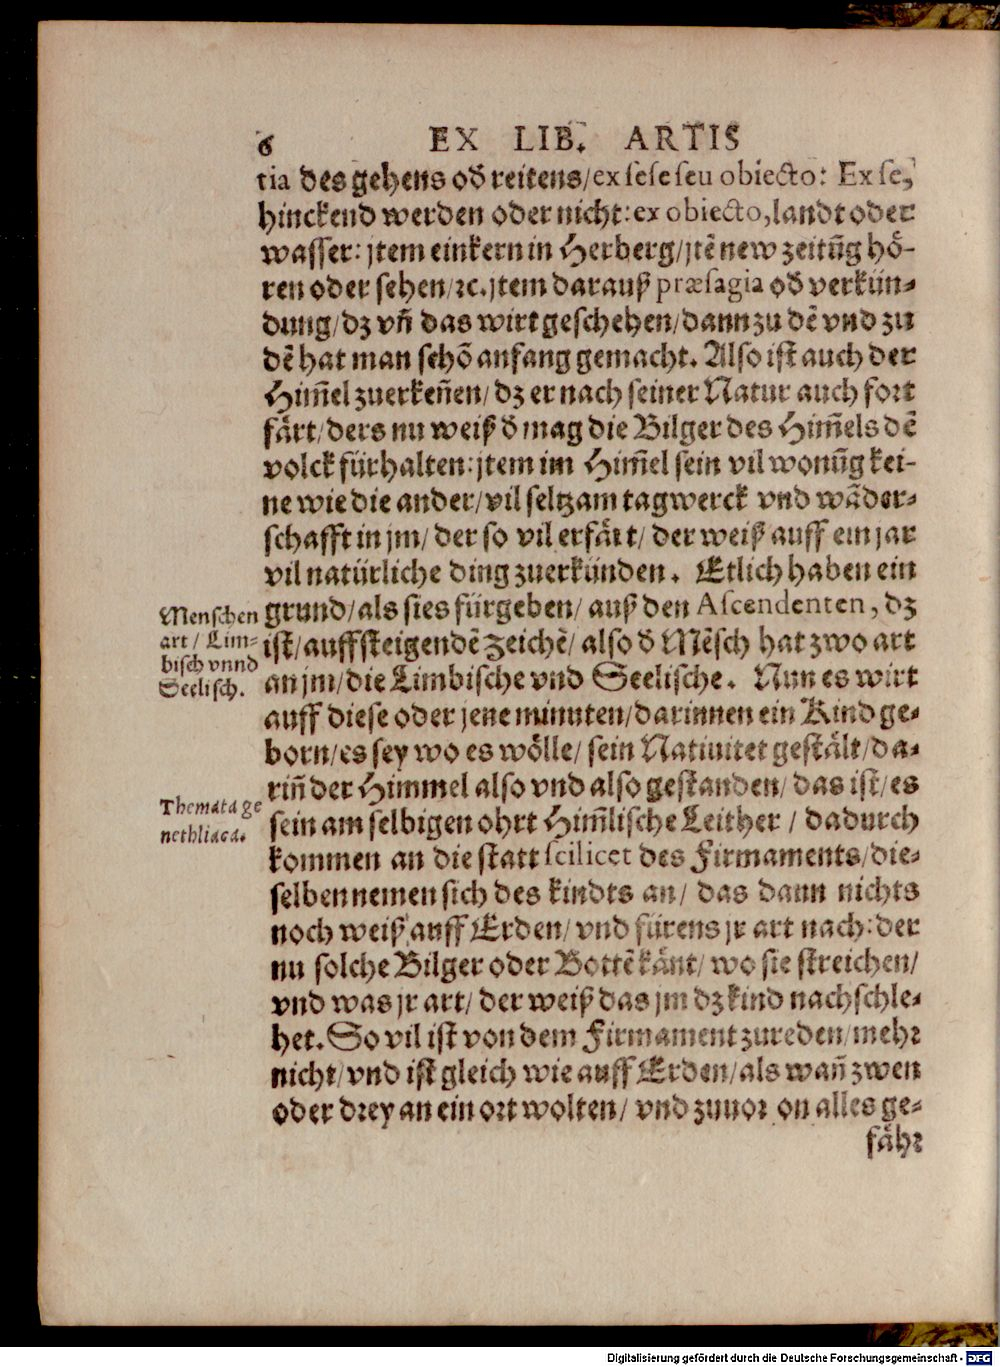 6 EX LIB. ARTIS
tia des gehens oð reitens/ ex sese seu obiecto: Ex se,
hinckend werden oder nicht: ex obiecto, landt oder
wasser: jtem einkern in Herberg/ jtẽ new zeitũg hö-
ren oder sehen/ ꝛc. jtem darauß præsagia oð verkün-
dung/ dz vñ das wirt geschehen/ dann zu dẽ vnd zu
dẽ hat man schõ anfang gemacht. Also ist auch der
Him̃el zuerkeñen/ dz er nach seiner Natur auch fort
färt/ ders nu weiß ð mag die Bilger des Him̃els dẽ
volck fürhalten: jtem im Him̃el sein vil wonũg kei-
ne wie die ander/ vil seltzam tagwerck vnd wãder-
schafft in jm/ der so vil erfärt/ der weiß auff ein jar
vil natürliche ding zuerkünden. Etlich haben ein
Menschen
art/ Lim-
bisch vnnd
Seelisch.
grund/ als sies fürgeben/ auß den Ascendenten, dz
ist/ auffsteigendẽ Zeichẽ/ also ð Mẽsch hat zwo art
an jm/ die Limbische vnd Seelische. Nun es wirt
auff diese oder jene minuten/ darinnen ein Kind ge-
born/ es sey wo es wölle/ sein Natiuitet gestält/ da-
riñ der Himmel also vnd also gestanden/ das ist/ es
Themata ge
nethliaca.
sein am selbigen ohrt Him̃lische Leither / dadurch
kommen an die statt scilicet des Firmaments/ die-
selben nemen sich des kindts an/ das dann nichts
noch weiß auff Erden/ vnd fürens jr art nach: der
nu solche Bilger oder Bottẽ känt/ wo sie streichen/
vnd was jr art/ der weiß das jm dz kind nachschle-
het. So vil ist von dem Firmament zureden/ mehr
nicht/ vnd ist gleich wie auff Erden/ als wañ zwen
oder drey an ein ort wolten/ vnd zuuor on alles ge-
fähr
Digitalisierung gefördert durch die Deutsche Forschungsgemeinschaft - DFG